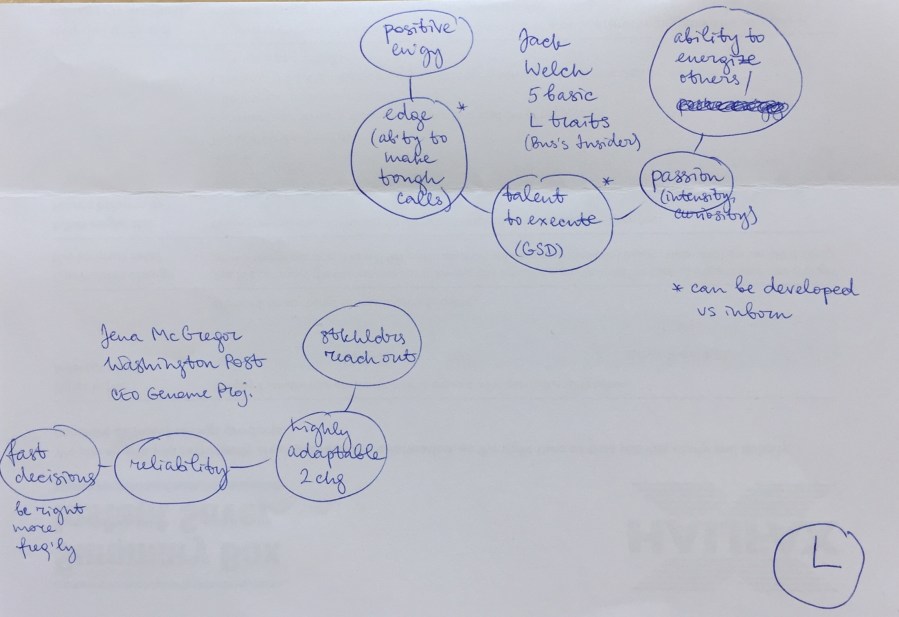 positive
en'gy
edge *
(ab'ty to
make
tough
calls)
Jack
Welch
5 basic
L traits
(Bus's Insider)
ability to
energize
others /
talent *
to execute
(GSD)
passion
(intensity,
curiosity)
* can be developed
vs inborn
Jena McGregor
Washington Post
CEO Genome Proj.
stkhldrs
reach out
highly
adaptable
2 chg
reliability
fast
decisions
be right
more
freq'ly
L